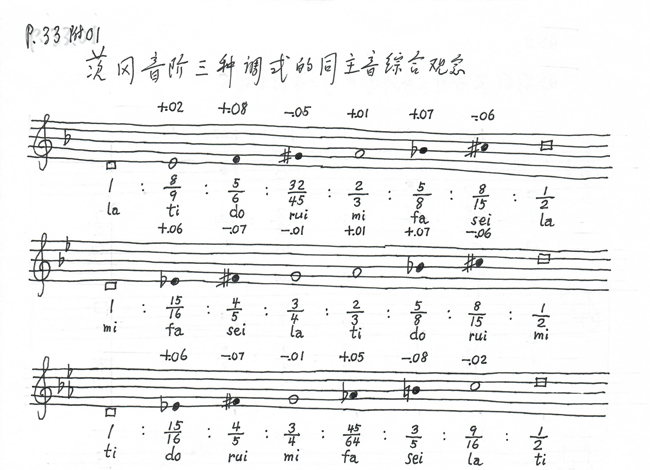 P.33 附01
茨冈音阶三种调式的同主音综合观念
+.02 +.08 -.05 +.01 +.07 -.06
1 : 8/9 : 5/6 : 32/45 : 2/3 : 5/8 : 8/15 : 1/2
la ti do rui mi fa sei la
+.06 -.07 -.01 +.01 +.07 -.06
1 : 15/16 : 4/5 : 3/4 : 2/3 : 5/8 : 8/15 : 1/2
mi fa sei la ti do rui mi
+.06 -.07 -.01 +.05 -.08 -.02
1 : 15/16 : 4/5 : 3/4 : 45/64 : 3/5 : 9/16 : 1/2
ti do rui mi fa sei la ti